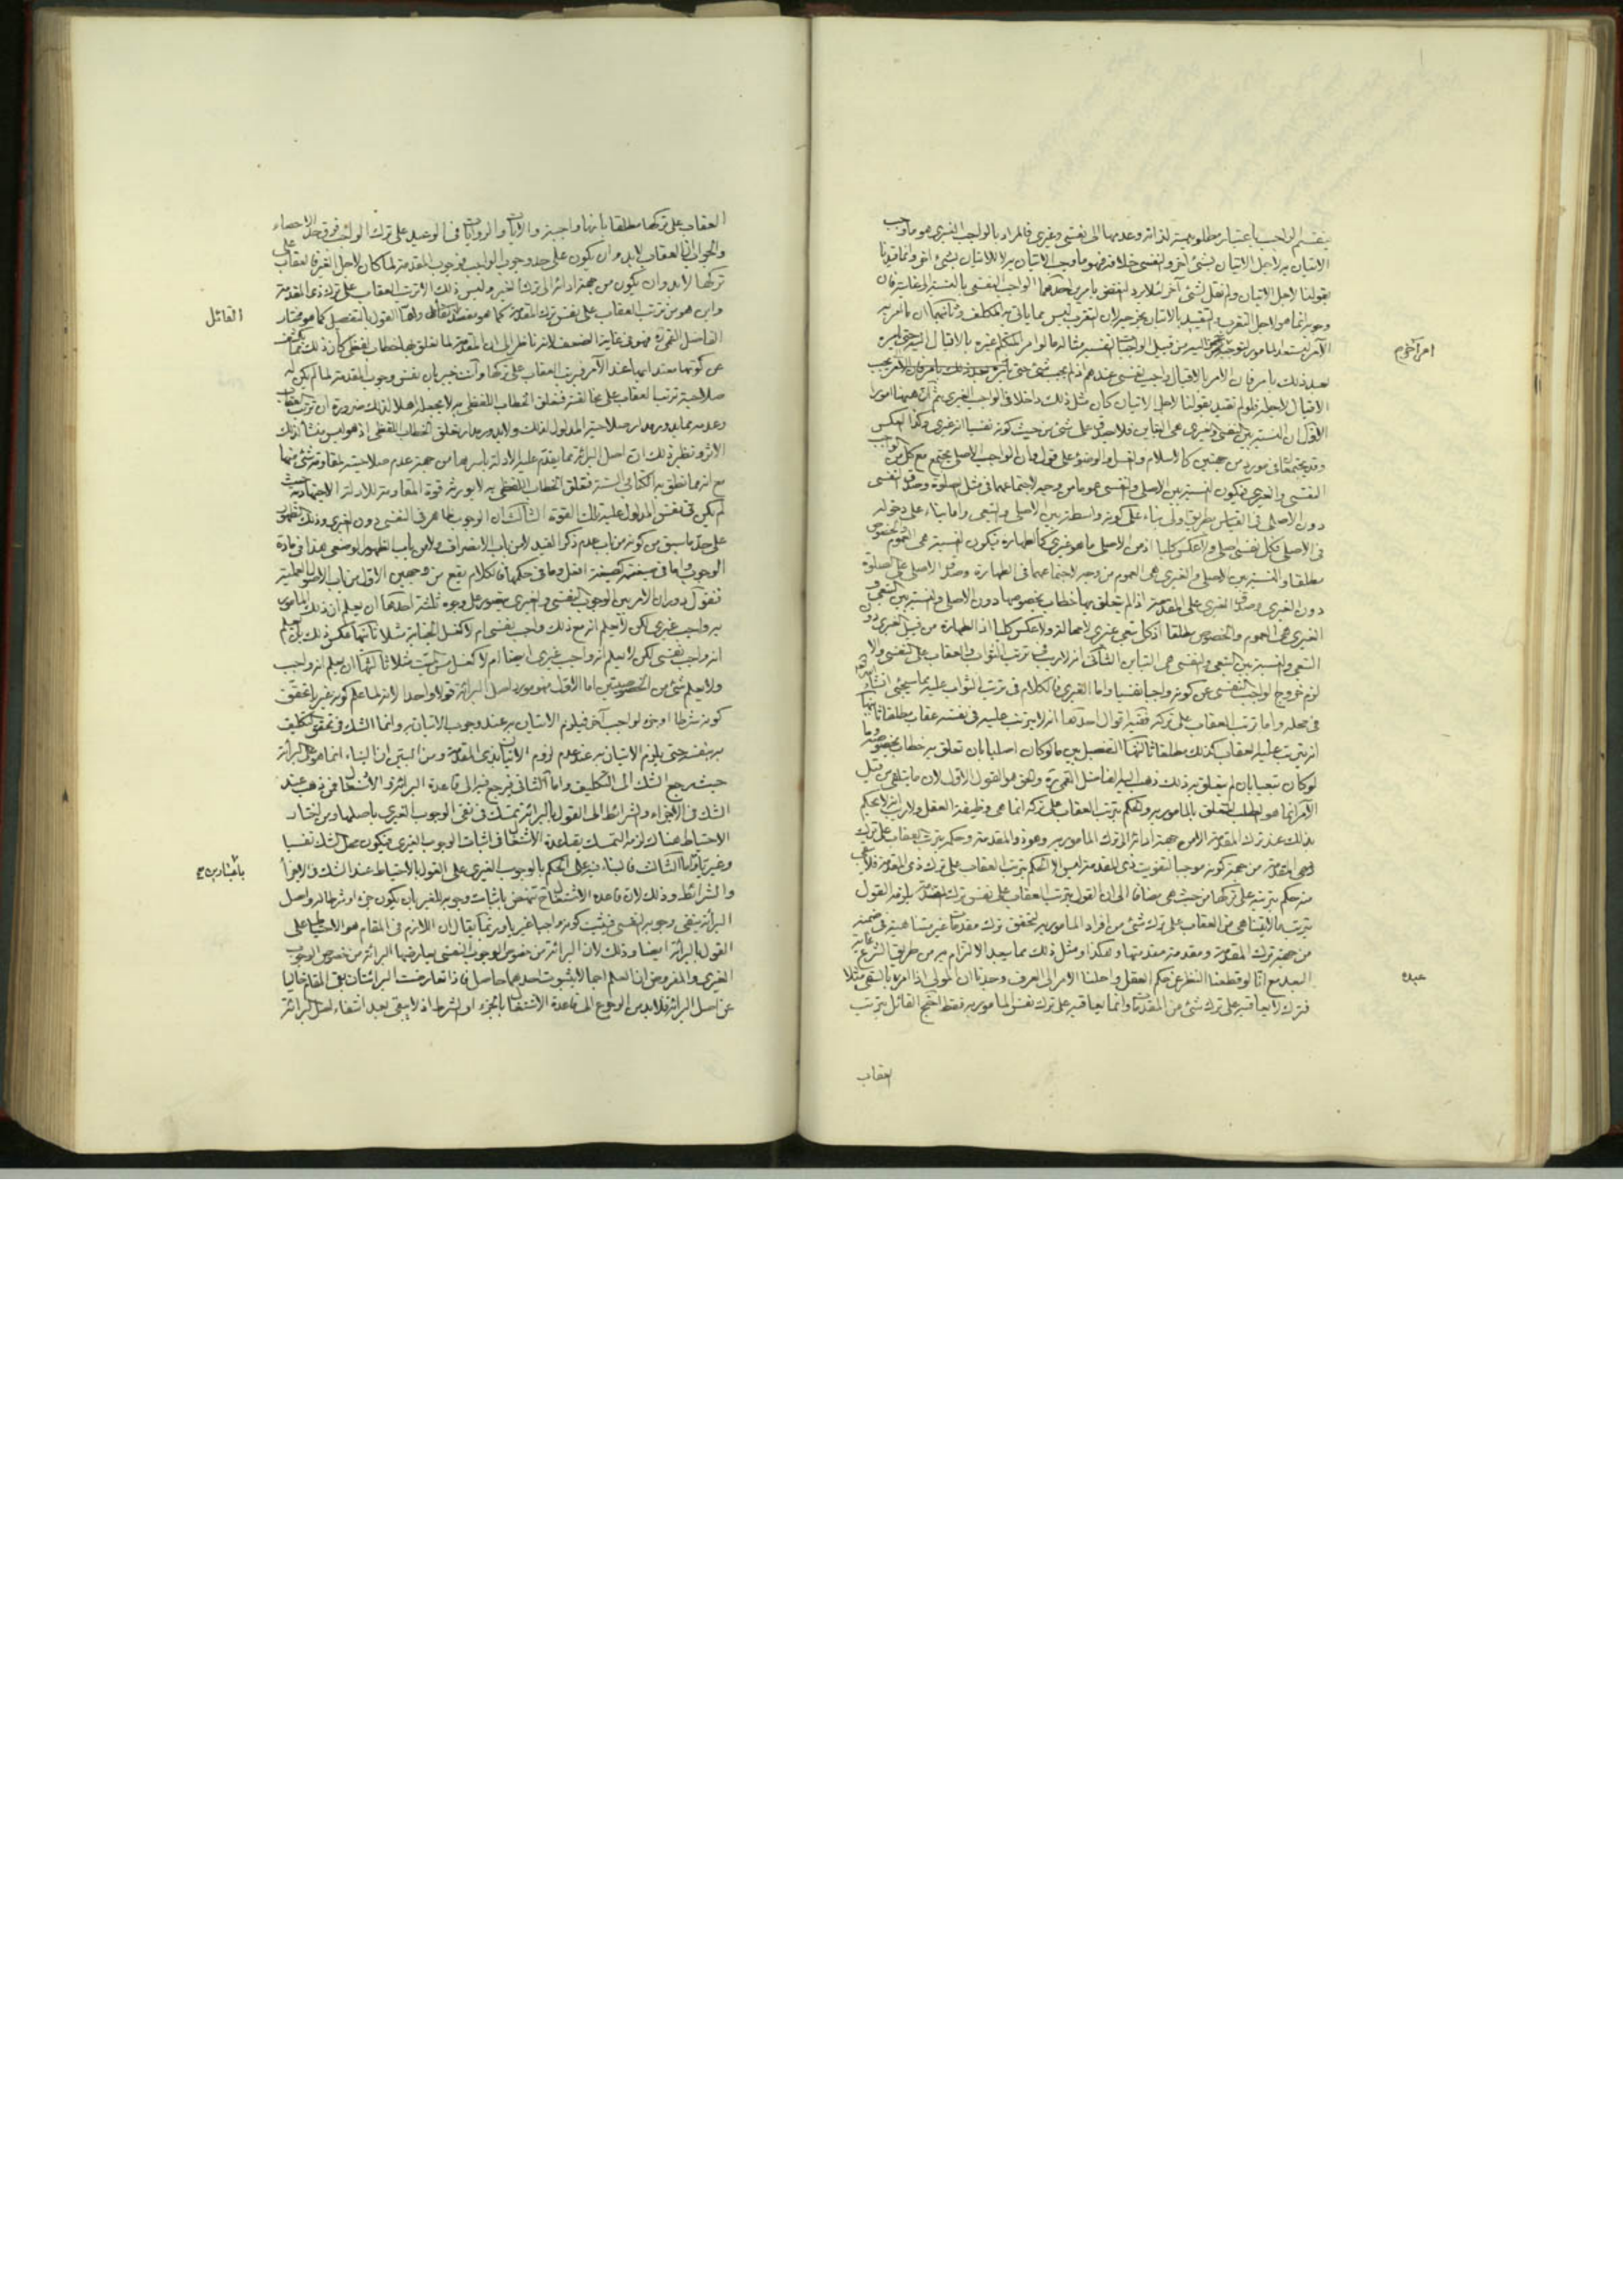 ينقسم الواجب باعتبار مطلوبيته لذاته وعدمها الى نفسى وغيرى فالمراد بالواجب الغيرى هو ما وجب
الاتيان به لاجل الاتيان بشئ آخر والنفسى خلافه فهو ما وجب الاتيان به لا للاتيان بشئ آخر وانما قيدنا
بقولنا لاجل الاتيان ولم نقل لشئ آخر لئلا يرد النقض بامرين احدهما الواجب النفسى بالنسبة الى غايته فان
وجوبه انما هو لاجل التقرب والتقييد بالاتيان يخرجه لان التقرب ليس مما ياتى به المكلف وثانيهما ان
بعد ذلك بامر فان الامر بالاقبال واجب نفسى عندهم اذ لم يجب شئ حتى
الاقبال لاجله فلو لم نقيد بقولنا لاجل الاتيان كان مثل ذلك داخلا فى الواجب الغيرى ثم ان ههنا امورا
الاول ان النسبة بين النفسى والغيرى هى التباين فلا يصدق على شئ من حيث كونه نفسيا انه غيرى وكذا العكس
وقد يجتمعان فى مورد من جهتين كالاسلام والغسل والوضوء على قول وان الواجب الاصلى يجتمع مع كل من
النفسى والغيرى فيكون النسبة بين الاصلى والنفسى عموما من وجه لاجتماعهما فى مثل الصلوة وصدق النفسى
فى الاصلى فكل نفسى اصلى ولا عكس كليا اذ من الاصلى ما هو غيرى كالطهارة فيكون النسبة هى العموم والخصوص
مطلقا والنسبة بين الاصلى والغيرى هى العموم من وجه لاجتماعهما فى الطهارة وصدق الاصلى على الصلوة
دون الغيرى وصدق الغيرى على المقدمة اذا لم يتعلق بها خطاب بخصوصها دون الاصلى والنسبة بين التبعى و
الغيرى هى العموم والخصوص مطلقا اذ كل تبعى غيرى لا محالة ولا عكس كليا اذ الطهارة من قبيل الغيرى دون
التبعى والنسبة بين التبعى والنفسى هى التباين الثانى انه لا ريب فى ترتب الثواب والعقاب على النفسى والا
لزم خروج الواجب النفسى عن كونه واجبا نفسيا واما الغيرى فالكلام فى ترتب الثواب عليه مما سيجئ انشاء الله
فى محله واما ترتب العقاب على تركه ففيه اقوال احدها انه لا يترتب عليه فى نفسه عقاب مطلقا ثانيها
انه يترتب عليه العقاب كذلك مطلقا ثالثها التفصيل بين ما لو كان اصليا بان تعلق به خطاب بخصوصه وما
لو كان تبعيا بان لم يتعلق به ذلك ذهب اليه الفاضل القمى ره والحق هو القول الاول لان ما يتلقى من قبل
الآمر انما هو الطلب المتعلق بالمامور به والحكم بترتب العقاب على تركه انما هى وظيفة العقل ولا ريب انه لا يحكم
بذلك عند ترك المقدمة الا من جهة ادائه الى ترك المامور به
منه حكم بترتبه على تركها من حيث هى مضافا الى ان القول بترتب العقاب على نفس ترك المقدمة يلزمه القول
بترتب ما لا يتناهى من العقاب على ترك شئ من افراد المامور به لتحقق ترك مقدمات غير متناهية فى ضمنه
من جهة ترك المقدمة ومقدمة مقدمتها وهكذا ومثل ذلك مما يبعد الالتزام به من طريقة الشرع غاية
البعد مع انا لو قطعنا النظر عن حكم العقل واحلنا الامر الى العرف وجدنا ان المولى اذا امر بالسقى مثلا
فتركه لا يعاقبه على ترك شئ من المقدمات وانما يعاقبه على ترك نفس المامور به فقط احتج القائل بترتب
العقاب
عبده
العقاب على تركها مطلقا بانها واجبة والآيات والروايات فى الوعيد على ترك الواجب فوق حد الاحصاء
والجواب ان العقاب لا بد وان يكون على حد وجوب الواجب فوجوب المقدمة لما كان لاجل الغير فالعقاب على
تركها لا بد وان يكون من جهة ادائه الى ترك الغير وليس ذلك الا ترتب العقاب على ترك ذى المقدمة
واين هو من ترتب العقاب على نفس ترك المقدمة كما هو مقصد القائل واما القول بالتفصيل كما هو مختار
الفاضل القمى ره فهو فى غاية الضعف لانه ناظر الى ان المقدمة لما تعلق بها خطاب لفظى كان ذلك مما يكشف
عن كونها معتدا بها عند الآمر فيترتب العقاب على تركها وانت خبير بان نفس وجوب المقدمة لما لم يكن له
صلاحية ترتب العقاب على مخالفته فتعلق الخطاب اللفظى به لا يجعله اهلا لذلك ضرورة ان ترتب العقاب
وعدمه مما يدور مدار صلاحية المدلول لذلك ولا يدور مدار تعلق الخطاب اللفظى اذ هو ليس منشأ لذلك
الاثر ونظير ذلك ان اصل البرائة مما يقدم عليه الادلة باسرها من جهة عدم صلاحيته لمقاومة شئ منها
مع انه مما نطق به الكتاب والسنة فتعلق الخطاب اللفظى به لا يورثه قوة المقاومة للادلة الاجتهادية حيث
لم يكن فى نفس المدلول عليه تلك القوة الثالث ان الوجوب ظاهر فى النفسى دون الغيرى وذلك الظهور
على حد ما سبق من كونه من باب عدم ذكر القيد لا من باب الانصراف ولا من باب الظهور الوضعى هذا فى مادة
الوجوب واما فى صيغته كصيغة افعل وما فى حكمها فالكلام يقع من وجهين الاول من باب الاصول العملية
فنقول دوران الامر بين الوجوب النفسى والغيرى يتصور على وجوه ثلثة احدها ان يعلم ان ذلك المامور
به واجب غيرى لكن لا يعلم انه مع ذلك واجب نفسى ام لا كغسل الجنابة مثلا ثانيها عكس ذلك بان يعلم
انه واجب نفسى لكن لا يعلم انه واجب غيرى ايضا ام لا كغسل مس الميت مثلا ثالثها ان يعلم انه واجب
ولا يعلم شئ من الخصوصيتين اما الاول فهو مورد اصل البرائة قولا واحدا لانه لما علم كونه غيريا تحقق
كونه شرطا او جزء لواجب آخر فيلزم الاتيان به عند وجوب الاتيان به وانما الشك فى تحقق التكليف
به بنفسه حتى يلزم الاتيان به عند عدم لزوم الاتيان بذى المقدمة ومن البين ان البناء انما هو على البرائة
حيث يرجع الشك الى التكليف واما الثانى فيرجع فيه الى قاعدة البرائة والاشتغال فمن ذهب عند
الشك فى الاجزاء والشرائط الى القول بالبرائة تمسك فى نفى الوجوب الغيرى باصلها ومن اختار
الاحتياط هناك لزمه التمسك بقاعدة الاشتغال فى اثبات الوجوب الغيرى فيكون محل الشك نفسيا
وغيريا واما الثالث فالبناء فيه على الحكم بالوجوب الغيرى على القول بالاحتياط عند الشك فى الاجزاء
والشرائط وذلك لان قاعدة الاشتغال ح تنهض باثبات وجوبه للغير بان يكون جزء او شرطا له واصل
البرائة ينفى وجوبه النفسى فيثبت كونه واجبا غيريا وربما يقال ان اللازم فى المقام هو الاحتياط على
القول بالبرائة ايضا وذلك لان البرائة من خصوص الوجوب النفسى يعارضها البرائة من خصوص الوجوب
الغيرى والمفروض ان العلم اجمالا بثبوت احدهما حاصل فاذا تعارضت البرائتان بقى المقام خاليا
عن اصل البرائة فلا بد من الرجوع الى قاعدة الاشتغال بالجزء او الشرط اذ لا يبقى بعد انتفاء اصل البرائة
القائل
باعتبارين